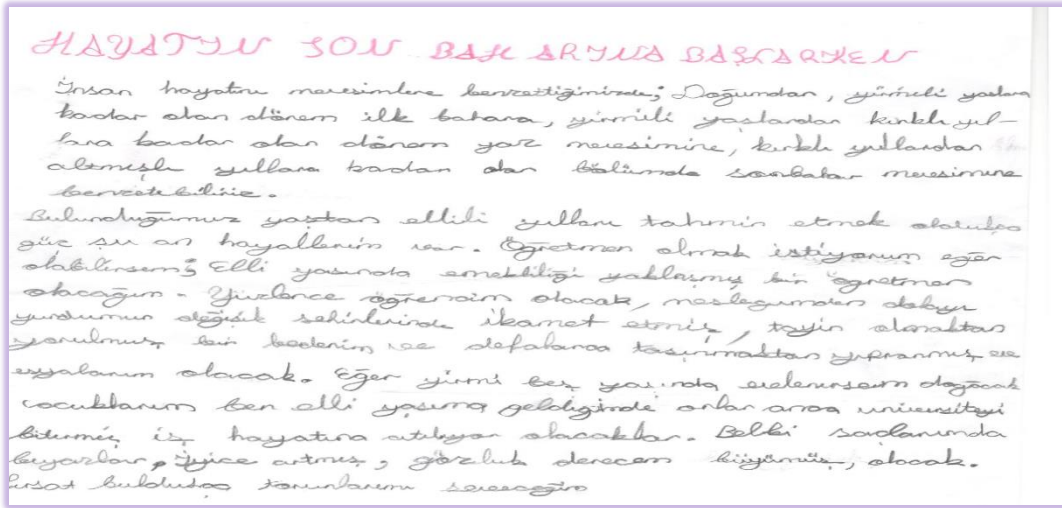 HAYATIN SON BAHARINA BAŞLARKEN
İnsan hayatını mevsimlere benzettiğimizde; Doğumdan, yirmili yaşlara
kadar olan dönem ilk bahara, yirmili yaşlardan kırklı yıl-
lara kadar olan dönem yaz mevsimine, kırklı yıllardan
altmışlı yıllara kadar olan bölümde sonbahar mevsimine
benzetebiliriz.
Bulunduğumuz yaştan ellili yılları tahmin etmek oldukça
güç şu an hayallerim var. Öğretmen olmak istiyorum eğer
olabilirsem; Elli yaşında emekliliği yaklaşmış bir öğretmen
olacağım. Yüzlerce öğrencim olacak, mesleğimden dolayı
yurdumun değişik şehirlerinde ikamet etmiş, tayin olmaktan
yorulmuş bir bedenim ve defalarca taşınmaktan yıpranmış ev
eşyalarım olacak. Eğer yirmi beş yaşında evlenirsem doğacak
çocuklarım ben elli yaşıma geldiğinde onlar anca üniversiteyi
bitirmiş iş hayatına atılıyor olacaklar. Belki saçlarımda
beyazlar, İyice artmış, gözlük derecem büyümüş, olacak.
fırsat buldukça torunlarımı seveceğim